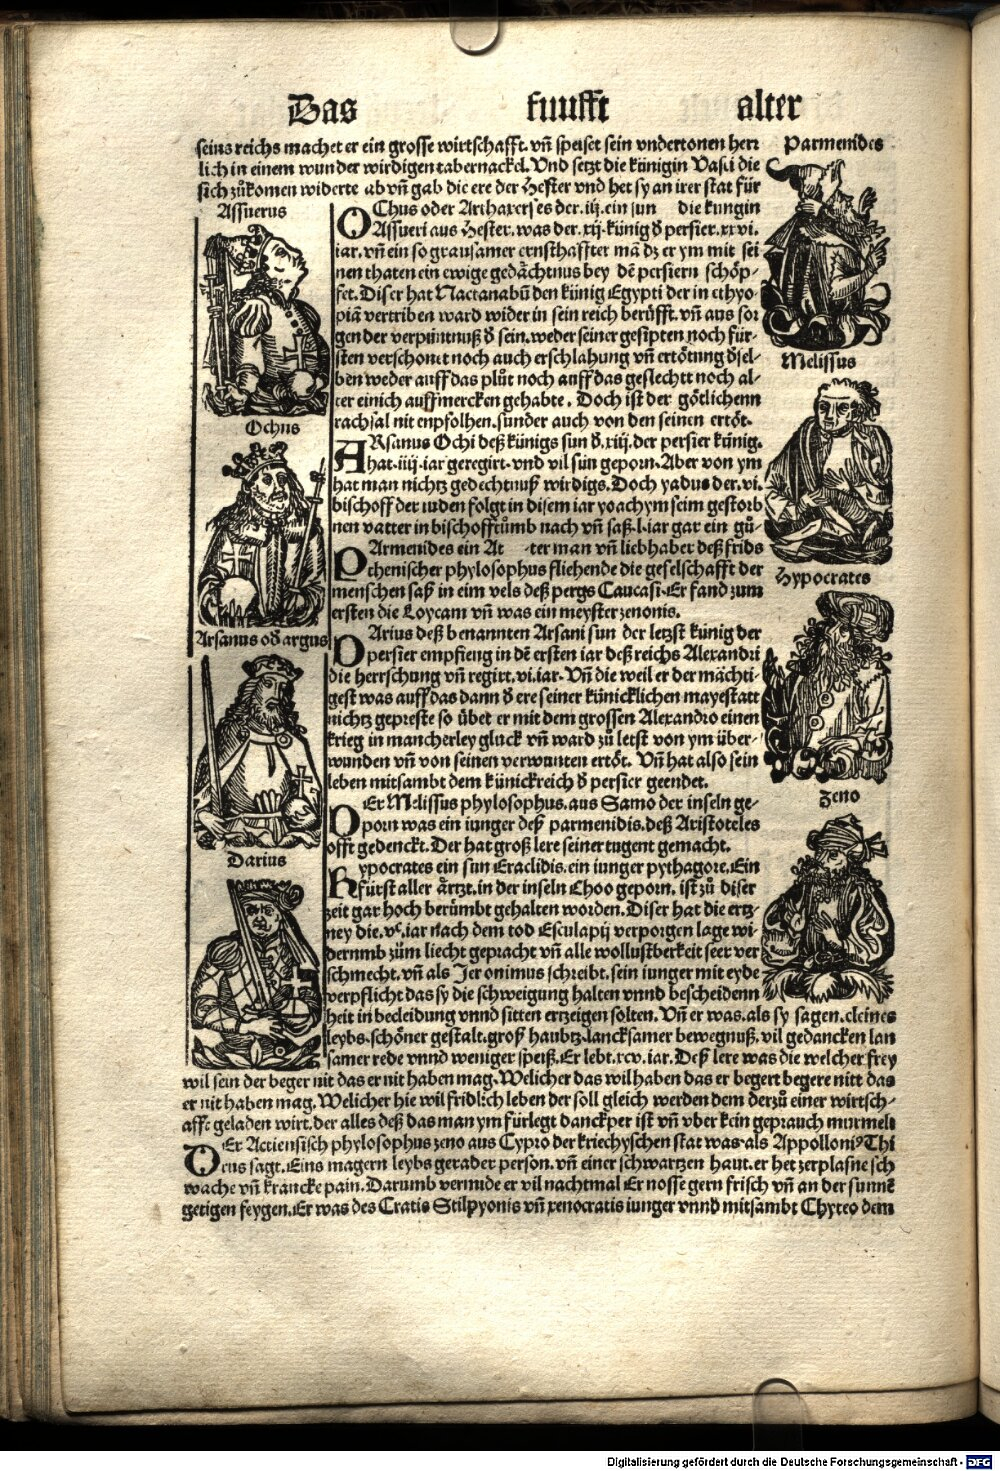 Das fuufft alter
seins reichs machet er ein grosse wirtschafft. vñ speiset sein vndertonen herr
lich in einem wunder wirdigen tabernackel. Vnd setzt die künigin Vasti die
sich zůkomen widerte ab vñ gab die ere der Hester vnd het sy an irer stat für
Parmenides
Assuerus
OChus oder Arthaxerses der .iij. ein sun die kungin
Assueri aus Hester. was der .xij. künig ð persier .xxvi.
iar. vñ ein so grausamer ernsthaffter mã dz er ym mit sei
nen thaten ein ewige gedächtnus bey dẽ persiern schöp-
fet. Diser hat Nactanabũ den künig Egypti der in ethyo-
piã vertriben ward wider in sein reich berüfft. vñ aus sor
gen der verpüntnuß ð sein. weder seiner gesipten noch für-
sten verschonet noch auch erschlahung vñ ertötung ðsel-
ben weder auff das plůt noch auff das geslechtt noch al-
ter einich auffmercken gehabte. Doch ist der götlichenn
rachsal nit enpfolhen. sunder auch von den seinen ertöt.
Melissus
Ochus
ARsanus Ochi deß künigs sun ð .xiij. der persier künig.
hat .iiij. iar geregirt. vnd vil sün geporn. Aber von ym
hat man nichtz gedechtnuß wirdigs. Doch yadus der .vi.
bischoff der iuden folgt in disem iar yoachym seim gestorb
nen vatter in bischofftůmb nach vñ saß .l. iar gar ein gů-
PArmenides ein At -ter man vñ liebhaber deß frids
thenischer phylosophus fliehende die geselschafft der
menschen saß in eim vels deß pergs Caucasi. Er fand zum
ersten die Loycam vñ was ein meyster zenonis.
Hypocrates
Arsanus oð argus
DArius deß benannten Arsani sun der letzst künig der
persier empfieng in dẽ ersten iar deß reichs Alexandri
die herrschung vñ regirt .vi. iar. Vñ die weil er der mächti-
gest was auff das dann ð ere seiner künicklichen mayestatt
nichtz gepreste so übet er mit dem grossen Alexandro einen
krieg in mancherley gluck vñ ward zů letst von ym über-
wunden vñ von seinen verwunten ertöt. Vñ hat also sein
leben mitsambt dem künickreich ð persier geendet.
Zeno
DEr Melissus phylosophus. aus Samo der inseln ge-
porn was ein iunger deß parmenidis. deß Aristoteles
offt gedenckt. Der hat groß lere seiner tugent gemacht.
Darius
HYpocrates ein sun Eraclidis. ein iunger pythagore. Ein
fürst aller ärtzt. in der inseln Choo geporn. ist zů diser
zeit gar hoch berümbt gehalten worden. Diser hat die ertz-
ney die .vᶜ. iar nach dem tod Esculapij verporgen lage wi-
derumb zům liecht gepracht vñ alle wollustberkeit seer ver
schmecht. vñ als Jeronimus schreibt. sein iunger mit eyde
verpflicht das sy die schweigung halten vnnd bescheidenn
heit in becleidung vnnd sitten ertzeigen solten. Vñ er was. als sy sagen. cleines
leybs. schöner gestalt. groß haubtz. lancksamer bewegnuß. vil gedancken lan
samer rede vnnd weniger speiß. Er lebt .xcv. iar. Deß lere was die welcher frey
wil sein der beger nit das er nit haben mag. Welicher das wil haben das er begert begere nitt das
er nit haben mag. Welicher hie wil fridlich leben der soll gleich werden dem derzů einer wirtsch-
afft geladen wirt. der alles deß das man ym fürlegt danckper ist vñ vber kein geprauch murmelt
DEr Actiensisch phylosophus zeno aus Cypro der kriechyschen stat was. als Appolloni9 Thi
reus sagt. Eins magern leybs gerader person. vñ einer schwartzen haut. er het zerplasne sch
wache vñ krancke pain. Darumb vermide er vil nachtmal Er nosse gern frisch vñ an der sunnẽ
getigen feygen. Er was des Cratis Stilpyonis vñ xenocratis iunger vnnd mitsambt Chyteo dem
Digitalisierung gefördert durch die Deutsche Forschungsgemeinschaft - DFG